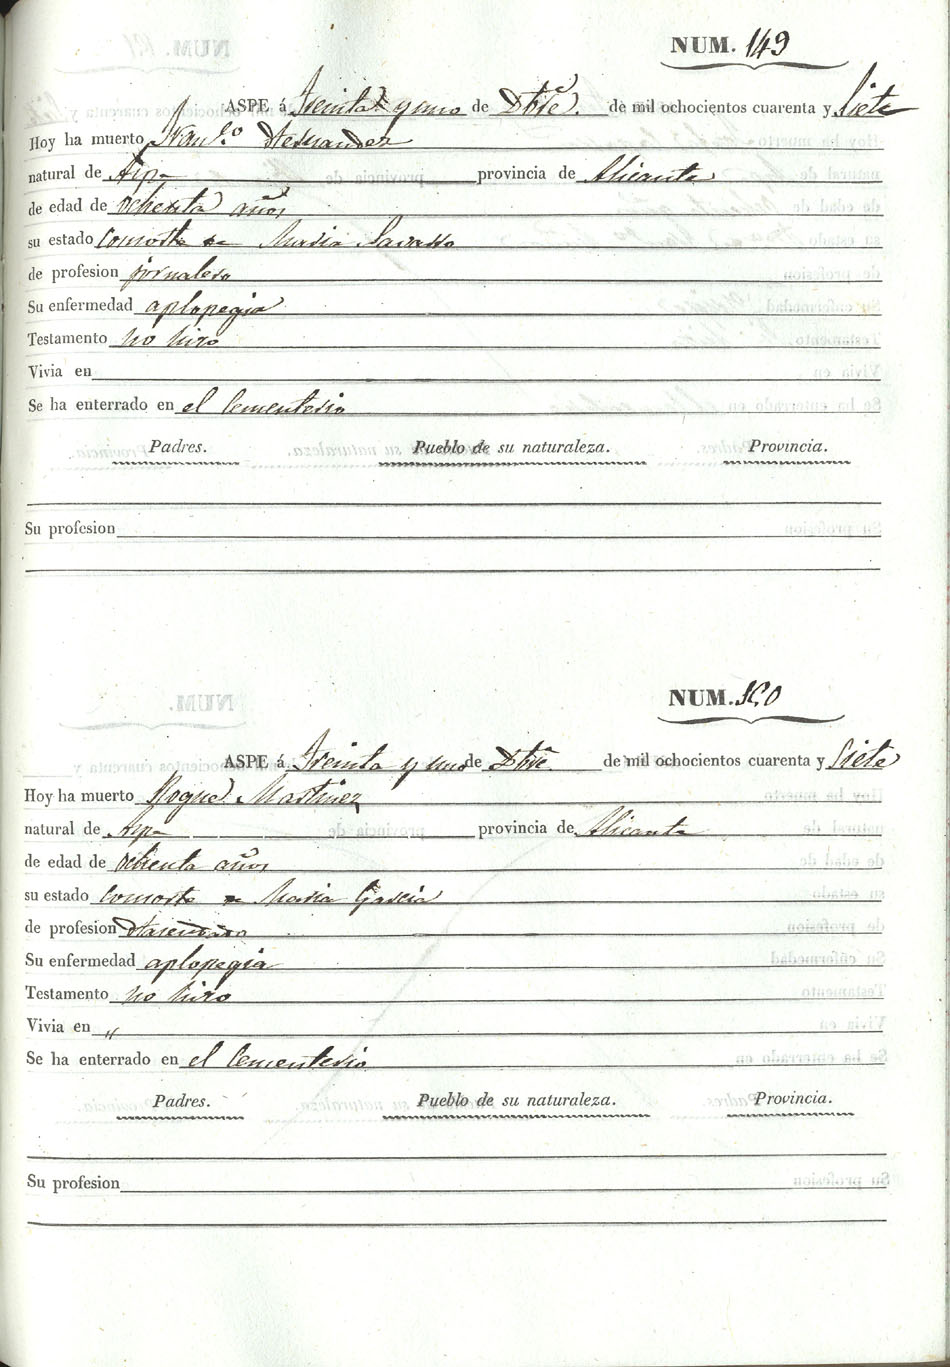 NUM. 149
ASPE á Treinta y uno de Dbre. de mil ochocientos cuarenta y Siete
Hoy ha muerto Hernandez
natural de Aspe provincia de Alicante
de edad de ochenta años
su estado consorte de Maria Navarro
de profesion jornalero
Su enfermedad aplopegia
Testamento no hizo
Vivia en
Se ha enterrado en el Cementerio
Padres. Pueblo de su naturaleza. Provincia.
Su profesion
NUM. 150
ASPE á Treinta y uno de Dbre de mil ochocientos cuarenta y Siete
Hoy ha muerto Roque Martinez
natural de Aspe provincia de Alicante
de edad de ochenta años
su estado consorte de Maria Garcia
de profesion
Su enfermedad aplopegia
Testamento no hizo
Vivia en "
Se ha enterrado en el Cementerio
Padres. Pueblo de su naturaleza. Provincia.
Su profesion